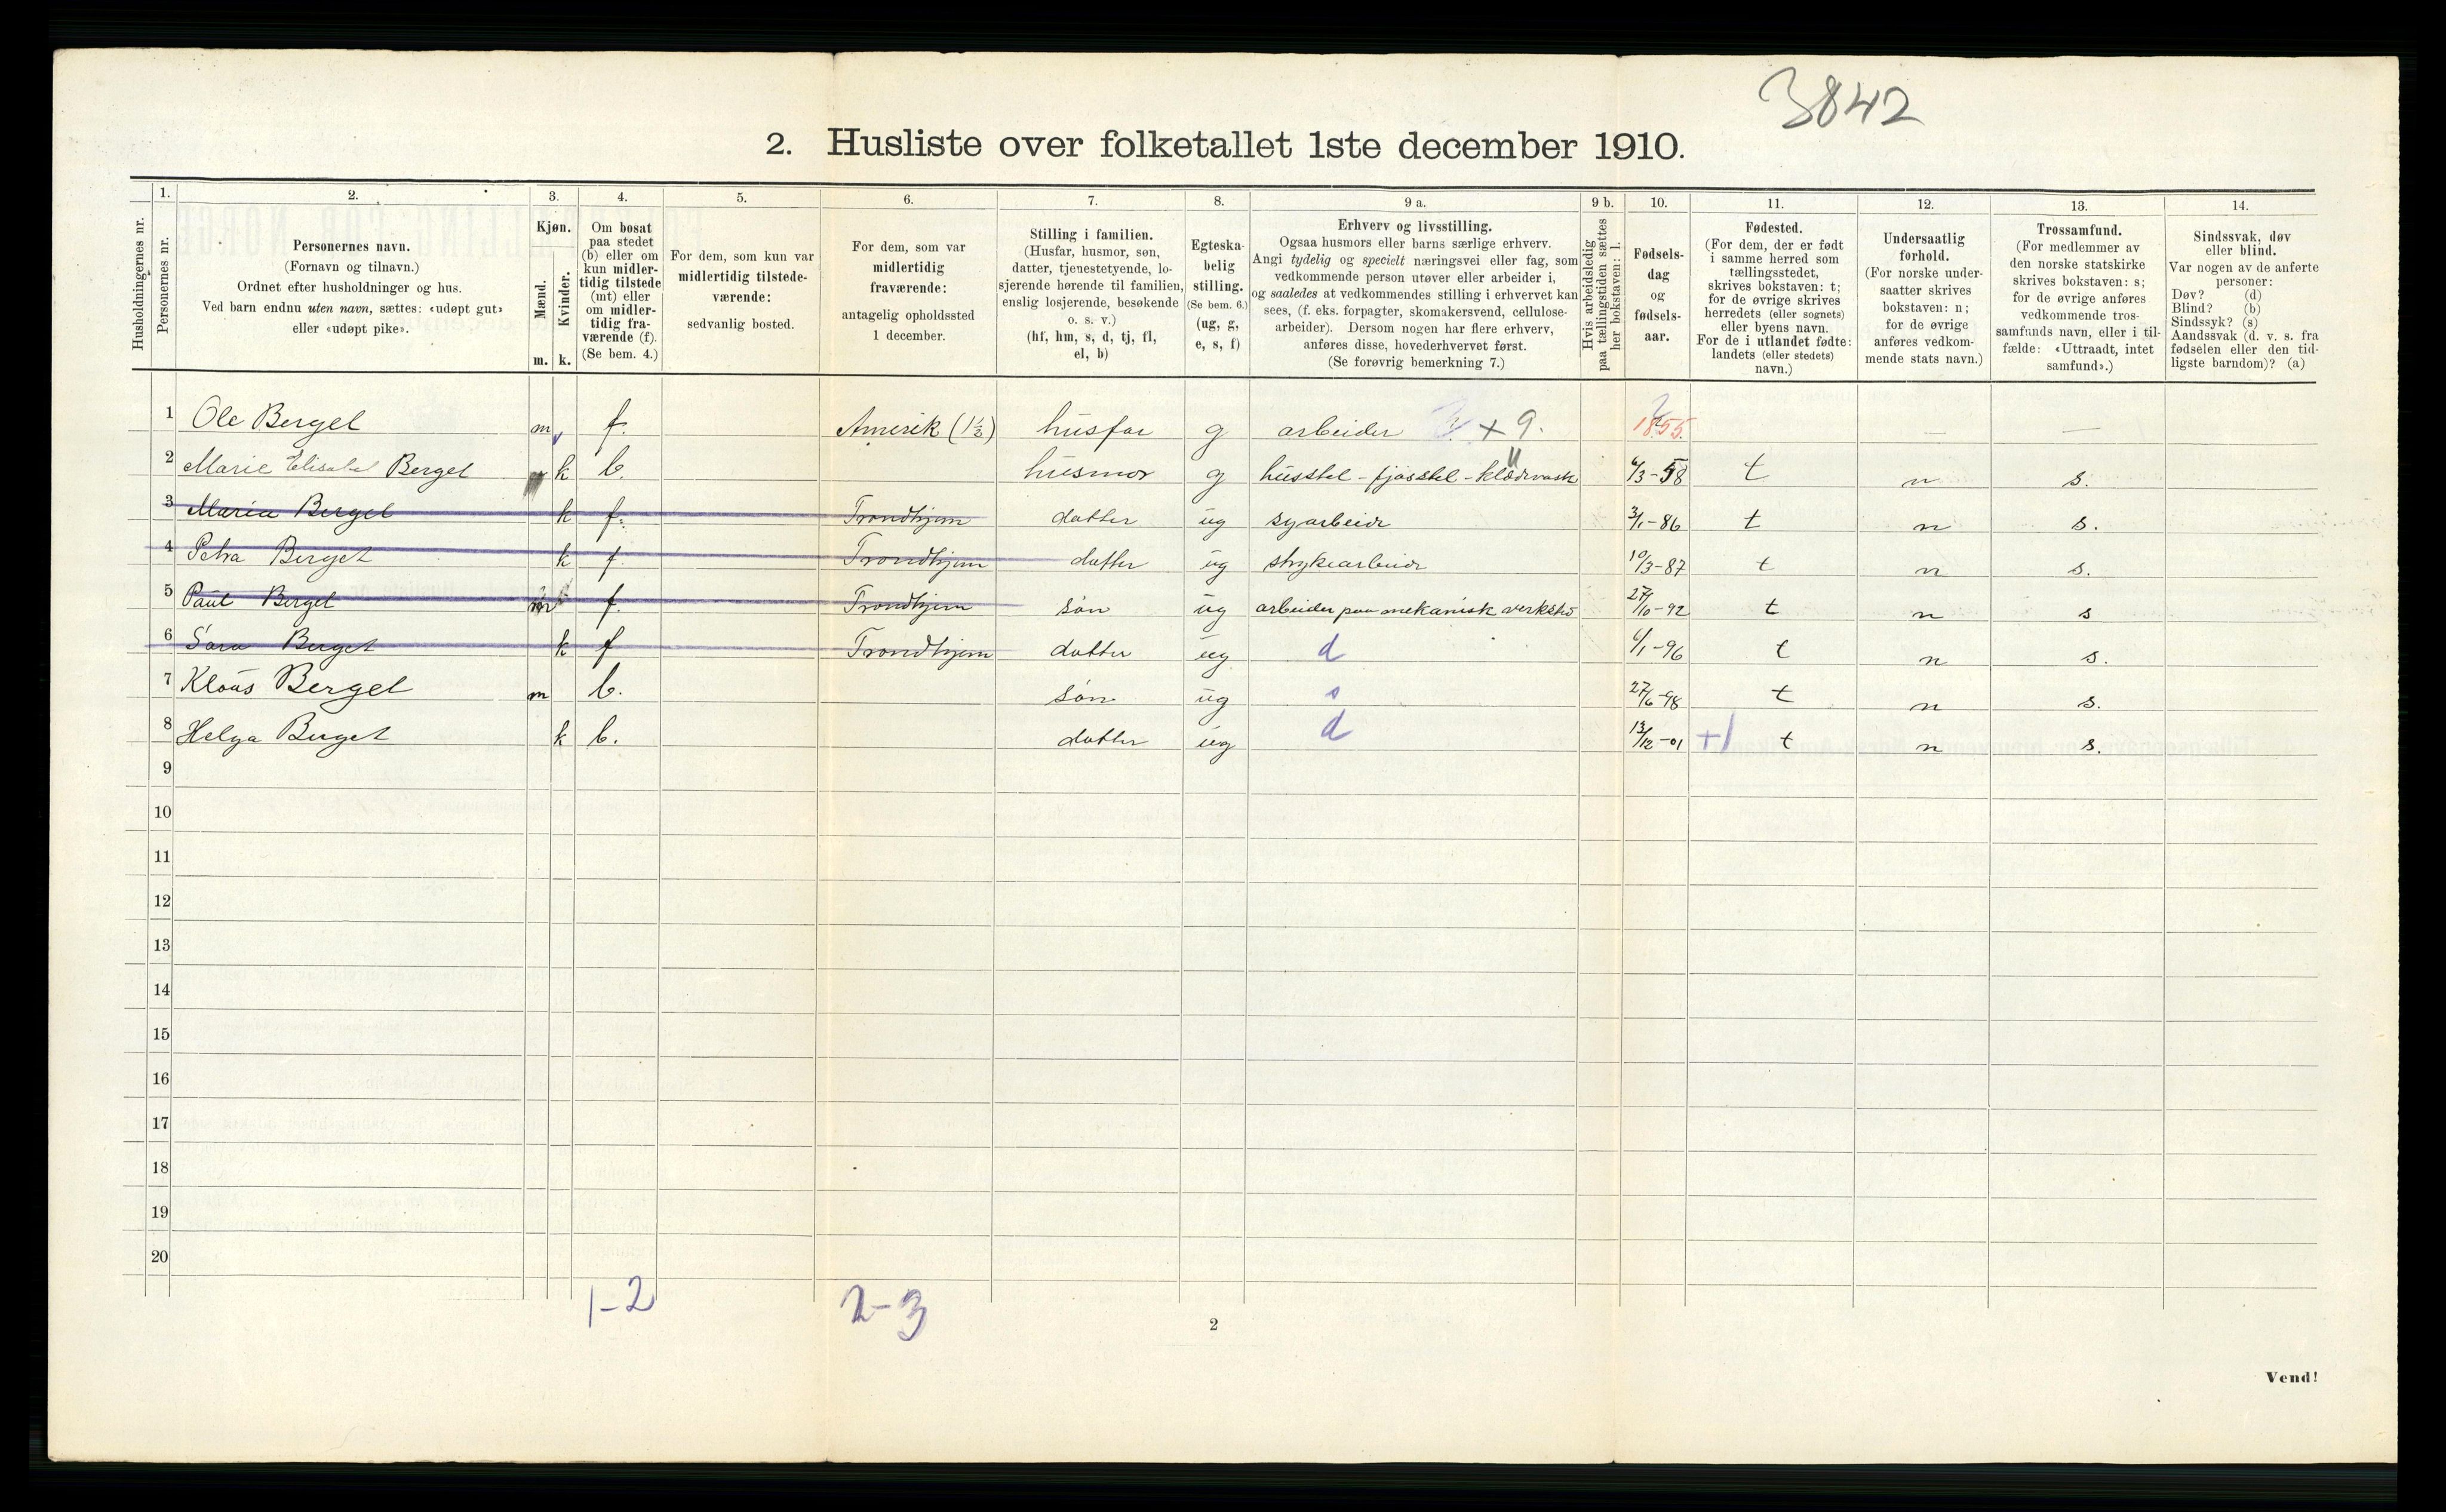 3842
2. Husliste over folketallet 1ste december 1910.
Husholdningernes nr.
1.
Personernes nr.
2.
Personernes navn.
(Fornavn og tilnavn.)
Ordnet efter husholdninger og hus.
Ved barn endnu uten navn, sættes: «udøpt gut»
eller «udøpt pike».
3.
Kjøn.
Mænd.
m.
Kvinder.
k.
4.
Om bosat
paa stedet
(b) eller om
kun midler-
tidig tilstede
(mt) eller
om midler-
tidig fra-
værende (f).
(Se bem. 4.)
5.
For dem, som kun var
midlertidig tilstede-
værende:
sedvanlig bosted.
6.
For dem, som var
midlertidig
fraværende:
antagelig opholdssted
1 december.
7.
Stilling i familien.
(Husfar, husmor, søn,
datter, tjenestetyende, lo-
sjerende hørende til familien,
enslig losjerende, besøkende
o. s. v.)
(hf, hm, s, d, tj, fl,
el, b)
8.
Egteska-
belig
stilling.
(Se bem. 6.)
(ug, g,
e, s, f)
9 a.
Erhverv og livsstilling.
Ogsaa husmors eller barns særlige erhverv.
Angi tydelig og specielt næringsvei eller fag, som
vedkommende person utøver eller arbeider i,
og saaledes at vedkommendes stilling i erhvervet kan
sees, (f. eks. forpagter, skomakersvend, cellulose-
arbeider). Dersom nogen har flere erhverv,
anføres disse, hovederhvervet først.
(Se forøvrig bemerkning 7.)
9 b.
Hvis arbeidsledig
paa tællingstiden sættes
her bokstaven: l.
10.
Fødsels-
dag
og
fødsels-
aar.
11.
Fødested.
(For dem, der er født
i samme herred som
tællingsstedet,
skrives bokstaven: t;
for de øvrige skrives
herredets (eller sognets)
eller byens navn.
For de i utlandet fødte:
landets (eller stedets)
navn.)
12.
Undersaatlig
forhold.
(For norske under-
saatter skrives
bokstaven: n;
for de øvrige
anføres vedkom-
mende stats navn.)
13.
Trossamfund.
(For medlemmer av
den norske statskirke
skrives bokstaven: s;
for de øvrige anføres
vedkommende tros-
samfunds navn, eller i til-
fælde: «Uttraadt, intet
samfund».)
14.
Sindssvak, døv
eller blind.
Var nogen av de anførte
personer:
Døv? (d)
Blind? (b)
Sindssyk? (s)
Aandssvak (d. v. s. fra
fødselen eller den tid-
ligste barndom)? (a)
1 Ole Berget m f. Amerik (1½) husfar g arbeider + 9. 1855. — —
2 Marie Elisabet Berget k b. husmor g husstel - fjøsstel - klædevask 6/3-58 t n s.
3 Maria Berget k f. Trondhjem datter ug syarbeide 3/1-86 t n s.
4 Petra Berget k f. Trondhjem datter ug strykearbeide 10/3-87 t n s.
5 Paul Berget m f. Trondhjem søn ug arbeider paa mekanisk verksted 27/10-92 t n s
6 Sara Berget k f Trondhjem datter ug d 6/1-96 t n s.
7 Klaus Berget m b. søn ug s 27/6-98 t n s.
8 Helga Berget k b. datter ug d 13/12-01 +1 t n s.
9
10
11
12
13
14
15
16
17
18
19
20
1-2 2-3
2
Vend!